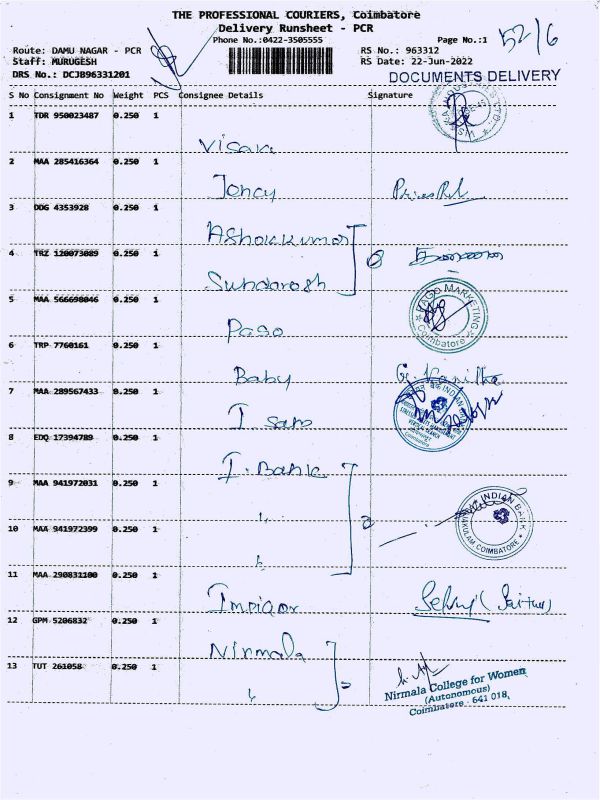 THE PROFESSIONAL COURIERS, Coimbatore
Delivery Runsheet - PCR
Phone No.:0422-3505555
Page No.:1
52/6
Route: DAMU NAGAR - PCR
RS No.: 963312
Staff: MURUGESH
RS Date: 22-Jun-2022
DRS No.: DCJB96331201
DOCUMENTS DELIVERY
S No Consignment No Weight PCS Consignee Details Signature
1 TDR 950023487 0.250 1
Visaka
2 MAA 285416364 0.250 1
Joncy
3 DDG 4353928 0.250 1
Ashokkumar
4 TRZ 120073089 0.250 1
Sundarosh
5 MAA 566698046 0.250 1
Pago
PAGO MARKETING
Coimbatore
6 TRP 7760161 0.250 1
Baby
7 MAA 289567433 0.250 1
8 EDQ 17394789 0.250 1
I. Bank
9 MAA 941972031 0.250 1
INDIAN BANK
COIMBATORE
10 MAA 941972399 0.250 1
11 MAA 290831100 0.250 1
12 GPM 5206832 0.250 1
Nirmala
13 TUT 261058 0.250 1
Nirmala College for Women
(Autonomous)
Coimbatore - 641 018.